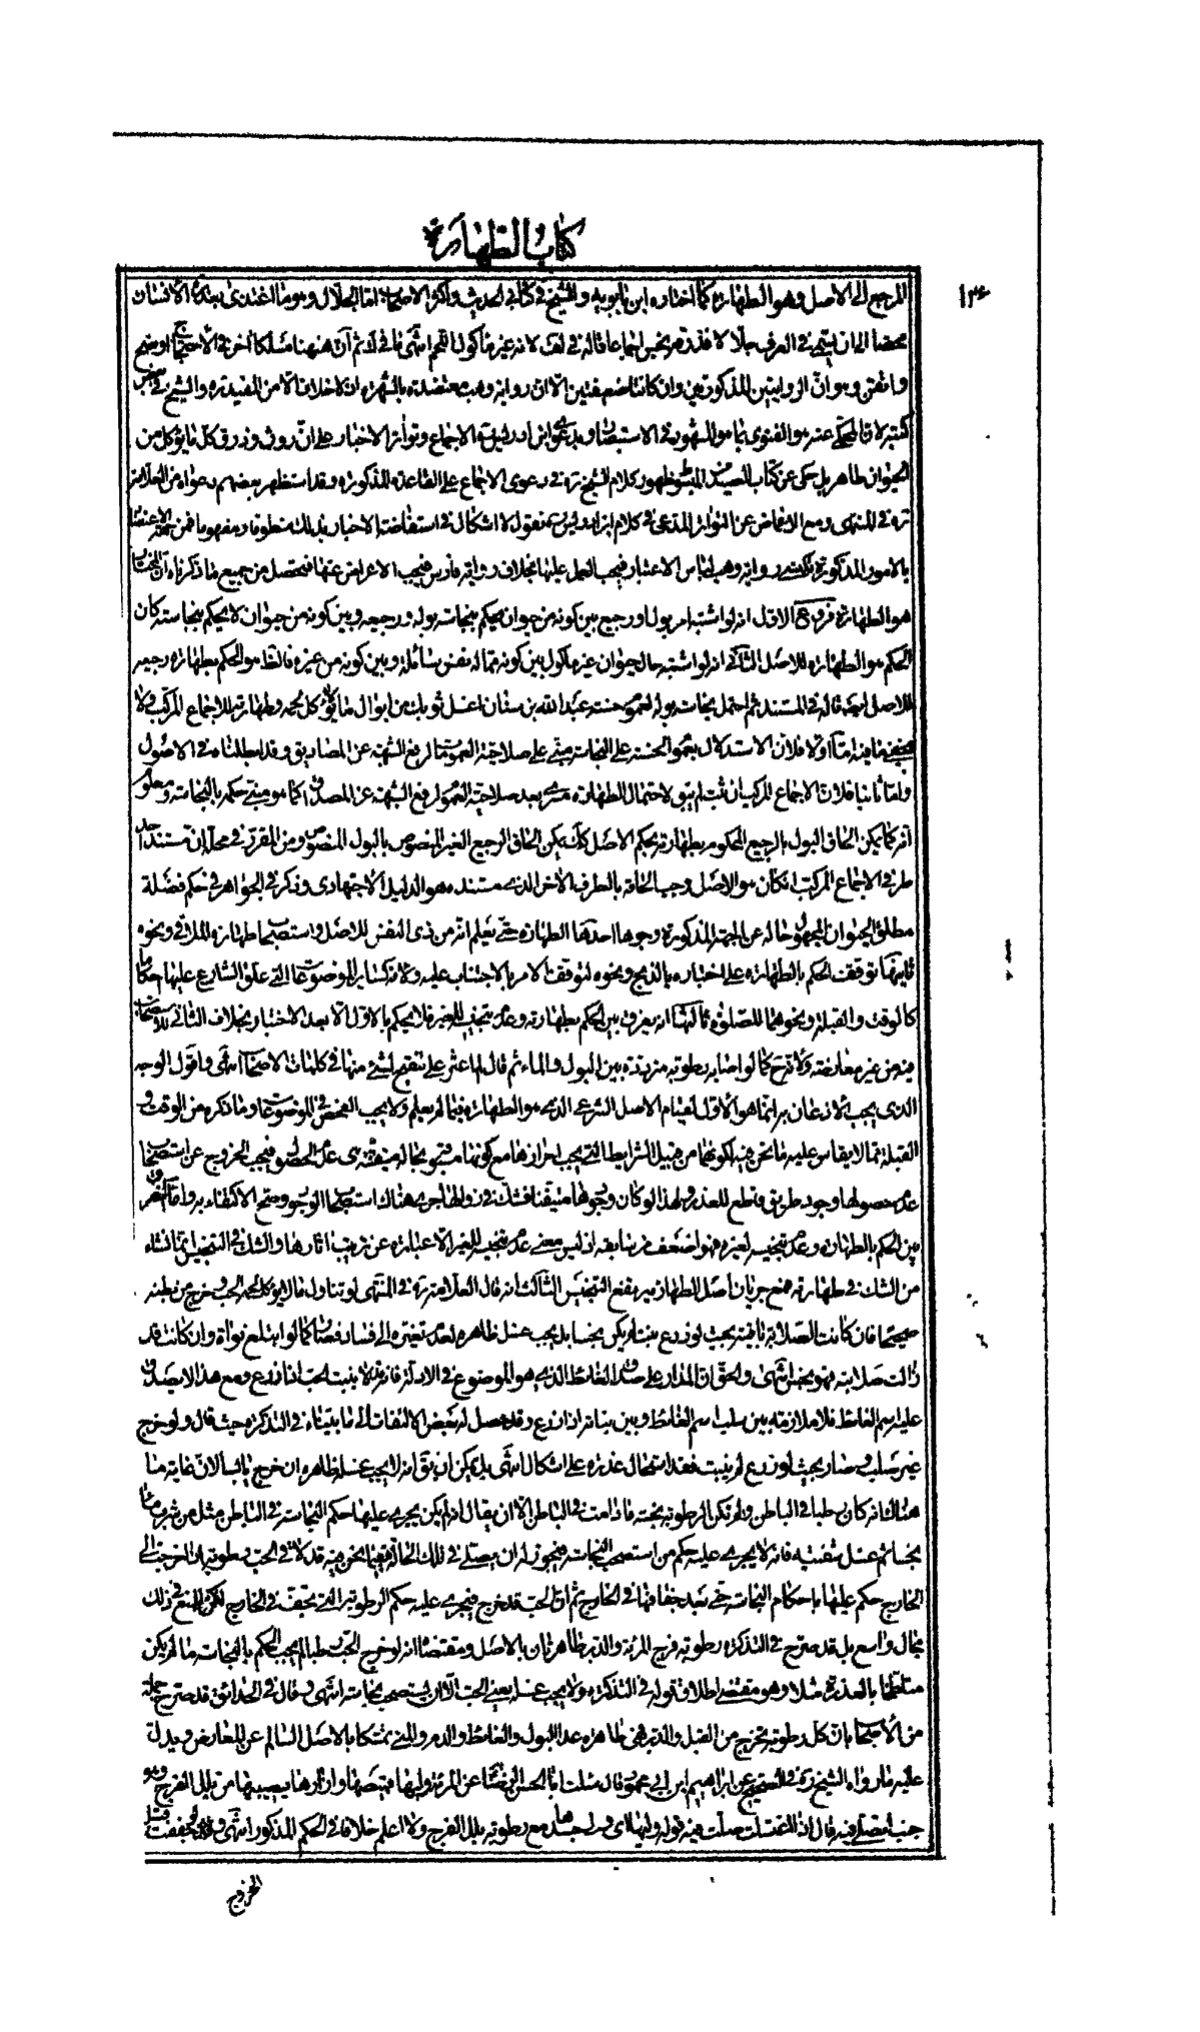 كتاب الطهارة
١٣٠
المرجع الى الاصل وهو الطهارة كما اختاره ابن بابويه والشيخ في كتابي الحديث واكثر الاصحاب امّا الجلال وهو ما اغتذى بعذرة الانسان
محضا الى ان يسمّى في العرف جلّالا فذرقه نجس اجماعا قاله في لف لانه غير مأكول اللحم انتهى ثم ان هيهنا مسلكا اخر في الاحتجاج اوضح
واتقن وهو انّ الروايتين المذكورتين وان كانتا ضعيفتين الّا انّ رواية وهب معتضدة بالشهرة ان لا خلاف الّا من المفيد ره والشيخ في بعض
كتبه لان المحكي عنه هو الفتوى بما هو المشهور في الاستبصار وبدعوى ابن ادريس الاجماع وتواتر الاخبار على انّ روث وذرق كل ما يؤكل من
الحيوان طاهر بل حكى عن كتاب الصيد من المبسوط ظهور كلام الشيخ ره في دعوى الاجماع على القاعدة المذكورة وقد استظهر بعضهم دعواه من العلامة
ره في المنتهى ومع الاغماض عن التواتر المدعى في كلام ابن ادريس نقول لا اشكال في استفاضة الاخبار بذلك منطوقا ومفهوما فمن جهة الاعتضاد
بالامور المذكورة تكتسي رواية وهب لباس الاعتبار فيجب العمل عليها بخلاف رواية فارس فيجب الاعراض عنها فتحصل من جميع ما ذكرناه ان المختار
هو الطهارة فروع الاول انه لو اشتبه امر بول او رجيع بين كونه من حيوان يحكم بنجاسة بوله ورجيعه وبين كونه من حيوان لا يحكم بنجاسته كان
الحكم هو الطهارة للاصل الثاني انه لو اشتبه حال حيوان غير مأكول بين كونه مما له نفس سائلة وبين كونه من غيره فالظاهر هو الحكم بطهارة رجيعه
للاصل اجمع قاله في المستند ثم احتمل نجاسة بوله لعموم حسنة عبد الله بن سنان اغسل ثوبك من ابوال ما لا يؤكل لحمه وطهارته للاجماع المركب ولا
يخفى ما فيه امّا اولا فلان الاستدلال بعموم الحسنة على النجاسة مبني على صلاحية العموم لرفع الشبهة عن المصاديق وقد ابطلناه في الاصول
وامّا ثانيا فلان الاجماع المركب ان ثبت لم يبق لاحتمال الطهارة مسرح بعد صلاحية العموم لرفع الشبهة عن المصداق كما هو مبنى حكمه بالنجاسة ومعلوم
انه كما يمكن الحاق البول بالرجيع المحكوم بطهارته بحكم الاصل كذلك يمكن الحاق الرجيع الغير المنصوص بالبول المنصوص ومن المقرر في محله ان مستند احد
طرفي الاجماع المركب ان كان هو الاصل وجب الحاقه بالطرف الاخر الذي مستنده هو الدليل الاجتهادي وذكر في الجواهر في حكم فضلة
مطلق الحيوان المجهول حاله عن الجهة المذكورة وجوها احدها الطهارة حتى يعلم انه من ذي النفس للاصل واستصحاب طهارة الملاقي ونحوه
ثانيها توقف الحكم بالطهارة على اختباره بالذبح ونحوه لتوقف الامر بالاجتناب عليه ولانه كسائر الموضوعات التي علق الشارع عليها احكاما
كالوقت والقبلة ونحوهما للصلوة ثالثها انه يفرق بين الحكم بطهارته وعدم تنجيسه للغير فلا يحكم بالاول الّا بعد الاختبار بخلاف الثاني للاستصحاب
فيه من غير معارضة ولانه ح كما لو اصابه رطوبة مترددة بين البول والماء ثم قال لم اعثر على تنقيح لشيء منها في كلمات الاصحاب انتهى واقول الوجه
الذي يجب الاذعان به انما هو الاول لقيام الاصل الشرعي الذي هو الطهارة فيما لم يعلم ولا يجب الفحص في الموضوعات وما ذكره من الوقت و
القبلة مما لا يقاس عليه ما نحن فيه لكونهما من قبيل الشرايط التي يجب احرازها مع كونها مسبوقة بحالة مقتضى عدم الحصول فيجب الخروج عن استصحاب
عدم حصولها وجود طريق قاطع للعذر ولهذا لو كان وجودها متيقنا فشك في زوالها جرى هناك استصحاب الوجود وصح الاكتفاء به وامّا الفرق
بين الحكم بالطهارة وعدم تنجيسه لغيره فهو اضعف من سابقه اذ ليس معنى عدم تنجيسه للغير الّا عبارة عن ترتيب اثارها والشك في التنجيس انما نشاء
من الشك في طهارته فمع جريان اصل الطهارة يرتفع التنجيس الثالث انه قال العلامة ره في المنتهى لو تناول ما لا يؤكل لحمه الحب وخرج من بطنه
صحيحا فان كانت الصلابة باقية بحيث لو زرع نبت لم يكن نجسا بل يجب غسل ظاهره لعدم تغيره الى فساد فصار كما لو ابتلع نواة وان كانت قد
زالت صلابته فهو نجس انتهى والحق ان المدار على صدق الغائط الذي هو الموضوع في الادلة فانه قد لا ينبت الحب اذا زرع ومع هذا لا يصدق
عليه اسم الغائط فلا ملازمة بين سلب اسم الغائط وبين نباته اذا زرع وقد حصل له بعض الالتفات الى ما بيناه في التذكرة حيث قال ولو خرج
غير صلب وصار بحيث لو زرع لم ينبت فقد استحال عذرة على اشكال انتهى بل يمكن ان يق انه لا يجب غسل ظاهره ان خرج يابسا لان غاية ما
هناك انه كان رطبا في الباطن ولم تكن الرطوبة نجسة ما دامت في الباطن الّا ان يقال انه لم يكن يجرى عليها حكم النجاسة في الباطن مثل من شرب ماء
نجسا ثم غسل شفتيه فانه لا يجرى عليه حكم من استصحب النجاسة فيجوز له ان يصلي في تلك الحالة ففيما نحن فيه قد لاقى الحب رطوبة ان اخرجت الى
الخارج حكم عليها باحكام النجاسة حتى بعد جفافها في الخارج ثم ان الحب قد خرج فيجرى عليه حكم الرطوبة التي تجف في الخارج لكن للمنع في ذلك
مجال واسع بل قد صرح في التذكرة رطوبة فرج المرئة والدبر طاهرتان بالاصل ومقتضاه انه لو خرج الحب رطبا لم يجب الحكم بالنجاسة ما لم يكن
متلطخا بالعذرة مثلا وهو مقتضى اطلاق قوله في التذكرة ولا يجب غسله يعني الحب الّا ان يستصحب نجاسة انتهى وقال في الحدائق قد صرح جملة
من الاصحاب بان كل رطوبة تخرج من القبل والدبر فهي طاهرة عدا البول والغائط والدم والمني تمسكا بالاصل السالم عن المعارض ويدل
عليه ما رواه الشيخ ره في الصحيح عن ابراهيم ابن ابي محمود قال سئلت ابا الحسن الرضا عن المرئة وليها قميصها وازارها يصيبها من بلل الفرج وهي
جنب اتصلي فيه قال اذا اغتسلت صلت فيه قوله وليها اي ولي جسدها مع رطوبة بلل الفرج ولا اعلم خلافا في الحكم المذكور انتهى ولو جففت قبل
الخروج